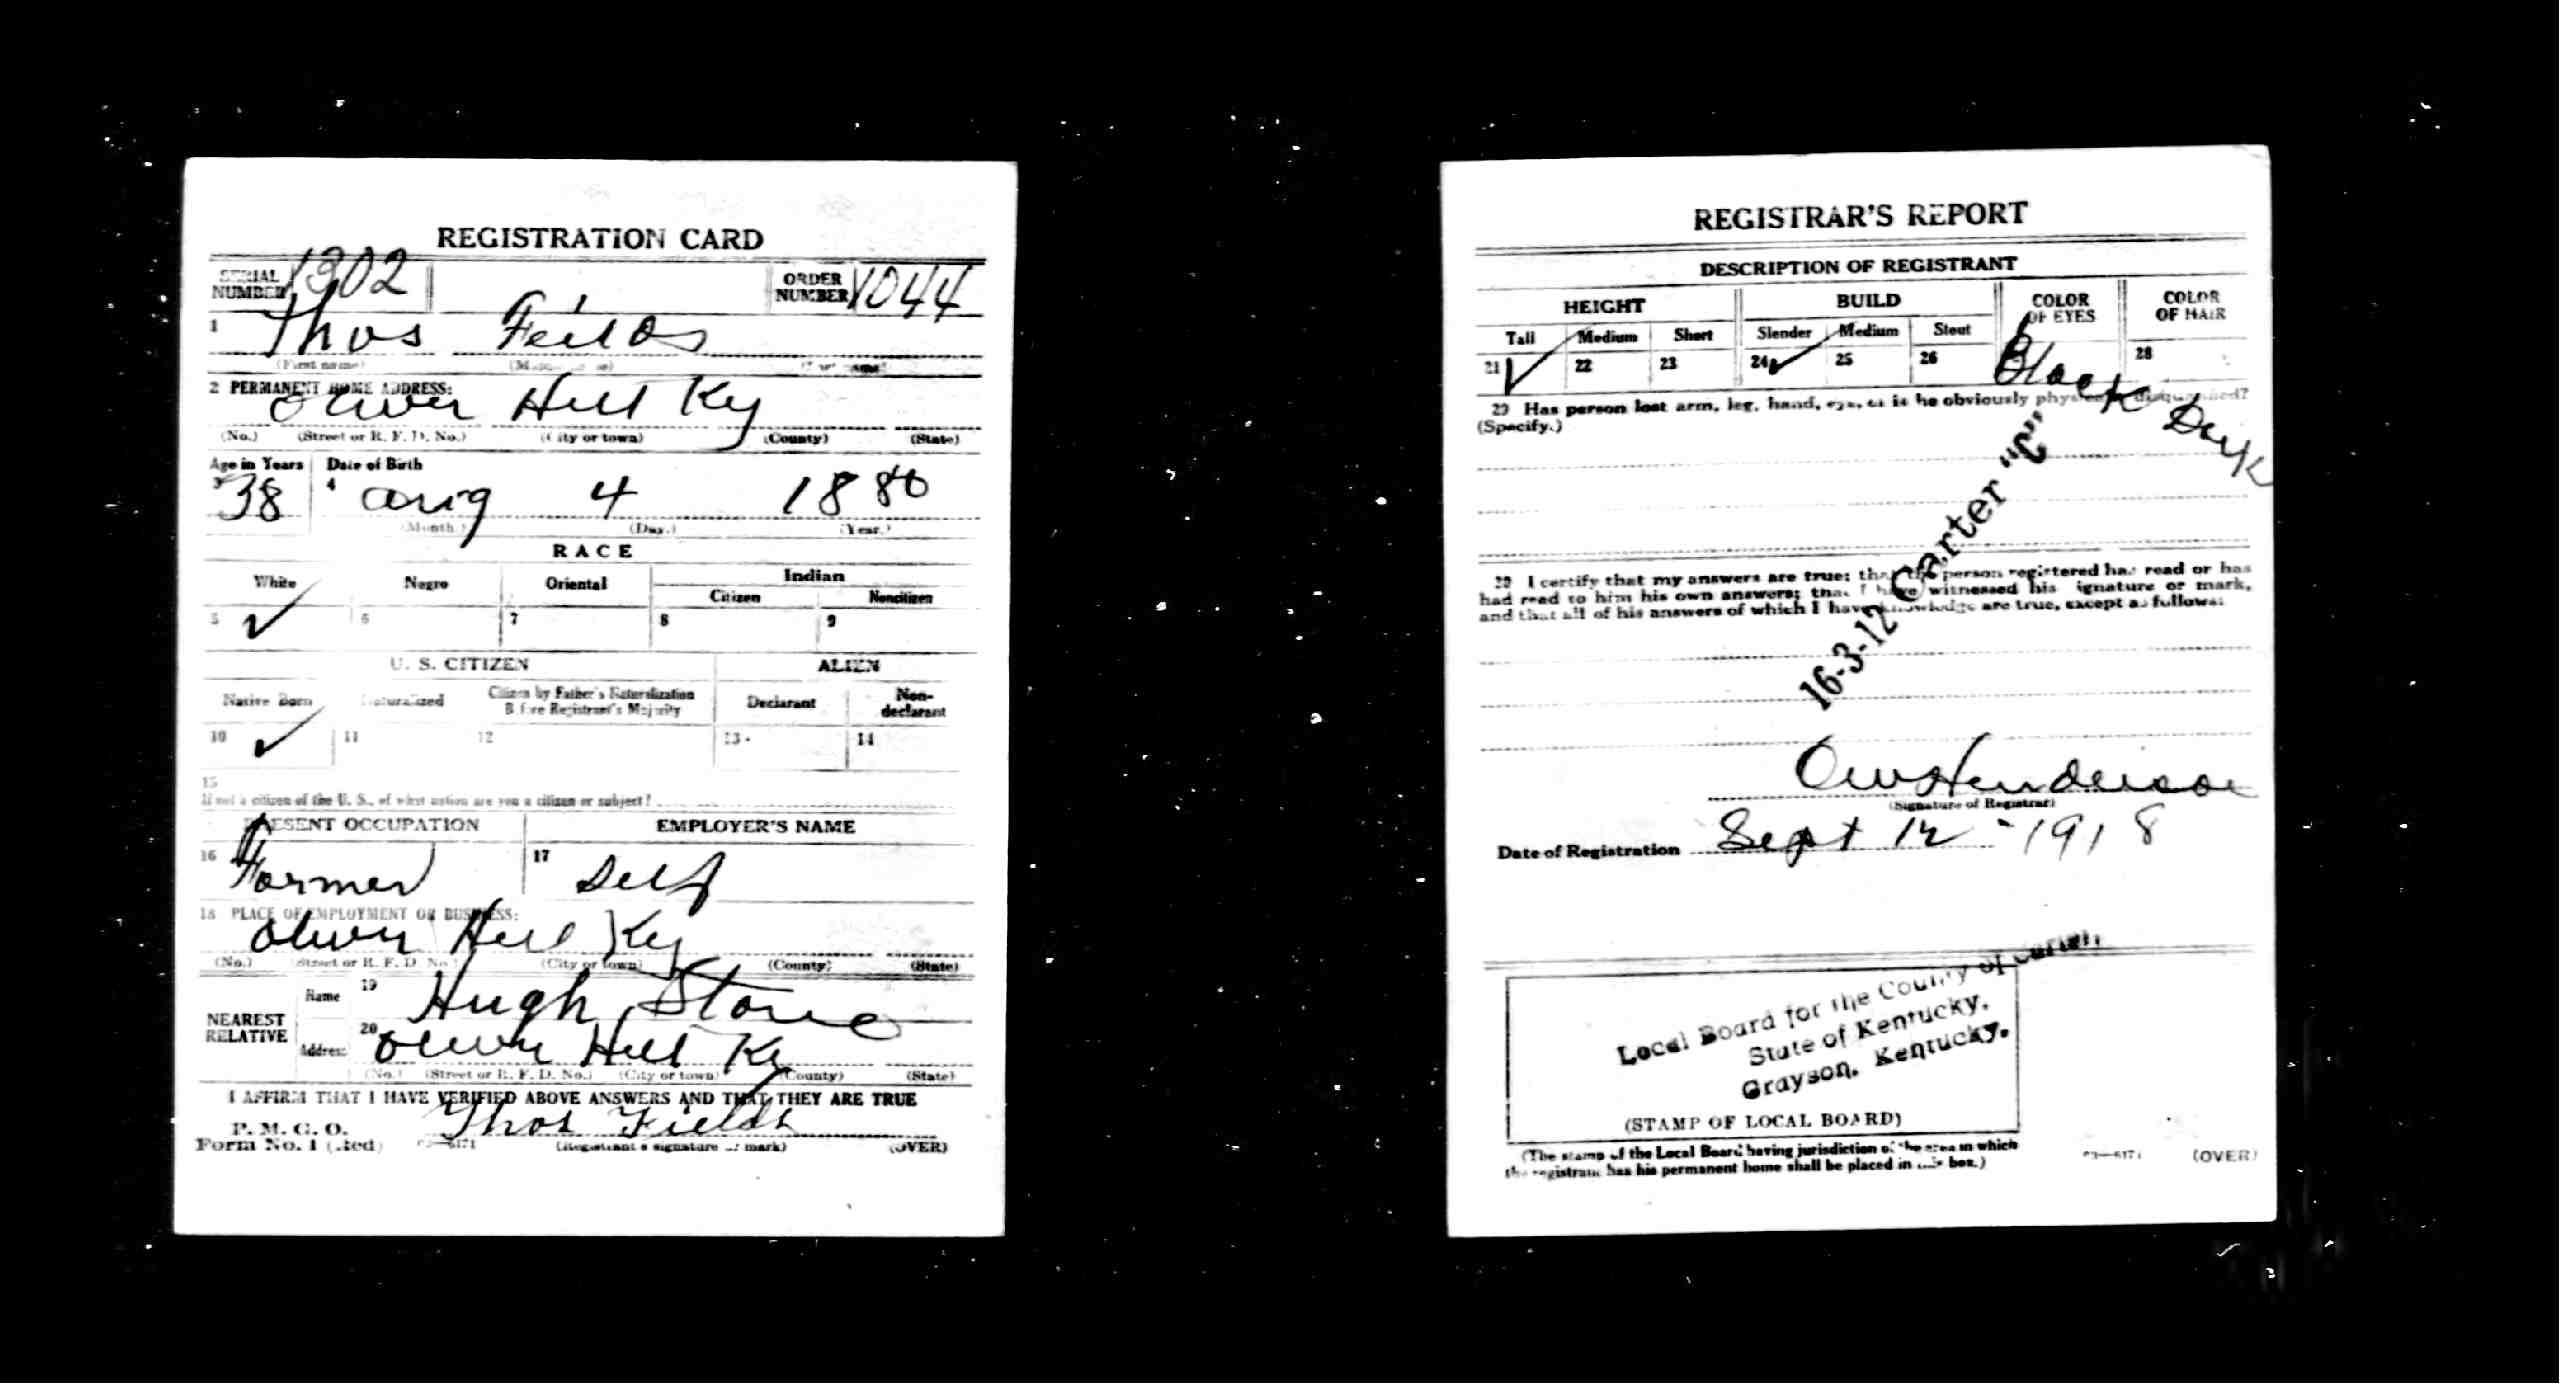 REGISTRATION CARD
SERIAL NUMBER 1302 ORDER NUMBER 1044
1 Thos Feilds
(First name)
2 PERMANENT HOME ADDRESS:
Oliver Hill Ky
(No.) (Street or R. F. D. No.) (City or town) (County) (State)
Age in Years Date of Birth
3 38 4 Aug 4 1880
(Month.) (Day.) (Year.)
RACE
White Negro Oriental Indian
Citizen Noncitizen
5 ✓ 6 7 8 9
U. S. CITIZEN ALIEN
Native Born Naturalized Citizen by Father's Naturalization Before Registrant's Majority Declarant Non-declarant
10 ✓ 11 12 13 14
15
If not a citizen of the U. S., of what nation are you a citizen or subject?
PRESENT OCCUPATION EMPLOYER'S NAME
16 Farmer 17 Self
18 PLACE OF EMPLOYMENT OR BUSINESS:
Oliver Hill Ky
(No.) (Street or R. F. D. No.) (City or town) (County) (State)
NEAREST RELATIVE
Name 19 Hugh Stone
Address 20 Oliver Hill Ky
(No.) (Street or R. F. D. No.) (City or town) (County) (State)
I AFFIRM THAT I HAVE VERIFIED ABOVE ANSWERS AND THAT THEY ARE TRUE
P. M. G. O.
Form No. 1 (Red) Thos Fields
(Registrant's signature or mark) (OVER)
REGISTRAR'S REPORT
DESCRIPTION OF REGISTRANT
HEIGHT BUILD COLOR OF EYES COLOR OF HAIR
Tall Medium Short Slender Medium Stout
21 ✓ 22 23 24 ✓ 25 26 Black 28 Dark
29 Has person lost arm, leg, hand, eye, or is he obviously physically disqualified?
(Specify.)
16-3-12 Carter "C"
30 I certify that my answers are true; that the person registered has read or has
had read to him his own answers; that I have witnessed his signature or mark,
and that all of his answers of which I have knowledge are true, except as follows:
OW Henderson
(Signature of Registrar)
Date of Registration Sept 12 - 1918
Local Board for the County of Carter,
State of Kentucky.
Grayson, Kentucky.
(STAMP OF LOCAL BOARD)
(The stamp of the Local Board having jurisdiction of the area in which
the registrant has his permanent home shall be placed in this box.)
(OVER)